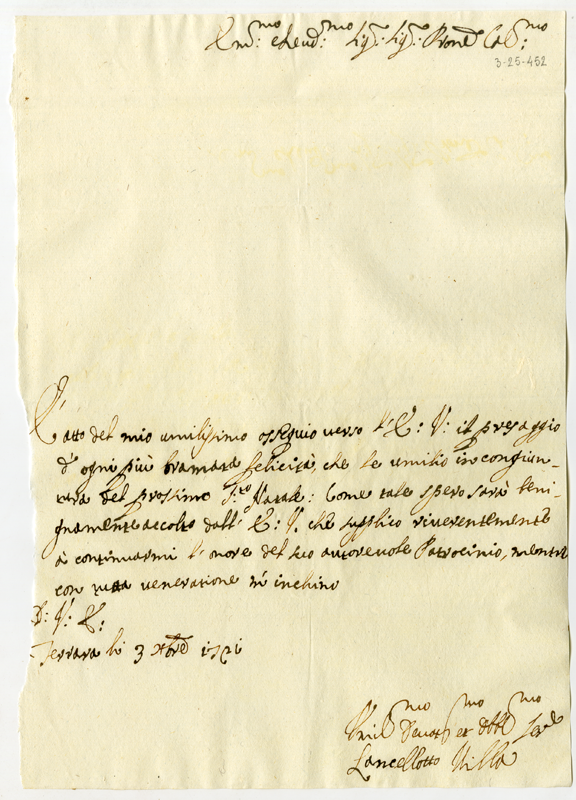 Em.mo e Reud.mo Sig.r Sig.r Pron.e Col.mo
3-25-452
È atto del mio umilissimo ossequio verso l'E: V: il presaggio
d'ogni più bramata felicità, che le umilio in congiun-
tura del prossimo S.to Natale: Come tale spero sarà beni-
gnamente accolto dall'E: V. che supplico riverentemente
à continuarmi l'onore del suo autorevole Patrocinio, mentre
con tutta venerazione m'inchino
D: V: E:
Ferrara li 3 Xbre 1721
Umil.mo Devot.mo et Obbl.mo Ser.e
Lancellotto Villa